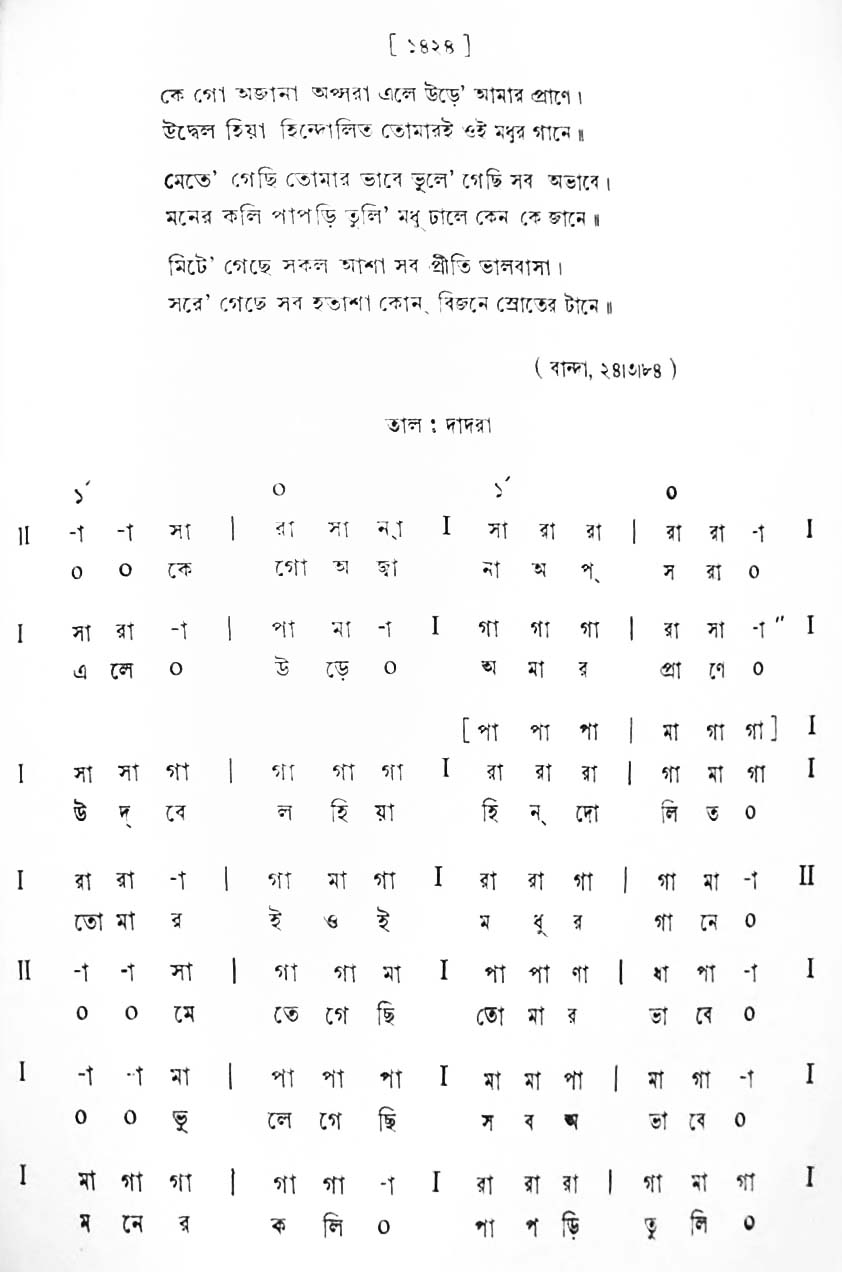 [ ১৪২৪ ]
কে গো অজানা অপ্সরা এলে উড়ে' আমার প্রাণে।
উদ্বেল হিয়া হিন্দোলিত তোমারই ওই মধুর গানে॥
মেতে' গেছি তোমার ভাবে ভুলে' গেছি সব অভাবে।
মনের কলি পাপড়ি তুলি' মধু ঢালে কেন কে জানে॥
মিটে' গেছে সকল আশা সব প্রীতি ভালবাসা।
সরে' গেছে সব হতাশা কোন্ বিজনে স্রোতের টানে॥
( বান্দা, ২৪।৩।৮৪ )
তাল : দাদরা
১´ ০ ১´ ০
II -া -া সা | রা সা ন্‌া I সা রা রা | রা রা -া I
০ ০ কে গো অ জা না অ প্ স রা ০
I সা রা -া | পা মা -া I গা গা গা | রা সা -া" I
এ লে ০ উ ড়ে ০ অ মা র প্রা ণে ০
[পা পা পা | মা গা গা] I
I সা সা গা | গা গা গা I রা রা রা | গা মা গা I
উ দ্ বে ল হি য়া হি ন্ দো লি ত ০
I রা রা -া | গা মা গা I রা রা গা | গা মা -া II
তো মা র ই ও ই ম ধু র গা নে ০
II -া -া সা | গা গা মা I পা পা ণা | ধা পা -া I
০ ০ মে তে গে ছি তো মা র ভা বে ০
I -া -া মা | পা পা পা I মা মা পা | মা গা -া I
০ ০ ভু লে গে ছি স ব অ ভা বে ০
I মা গা গা | গা গা -া I রা রা রা | গা মা গা I
ম নে র ক লি ০ পা প ড়ি তু লি ০